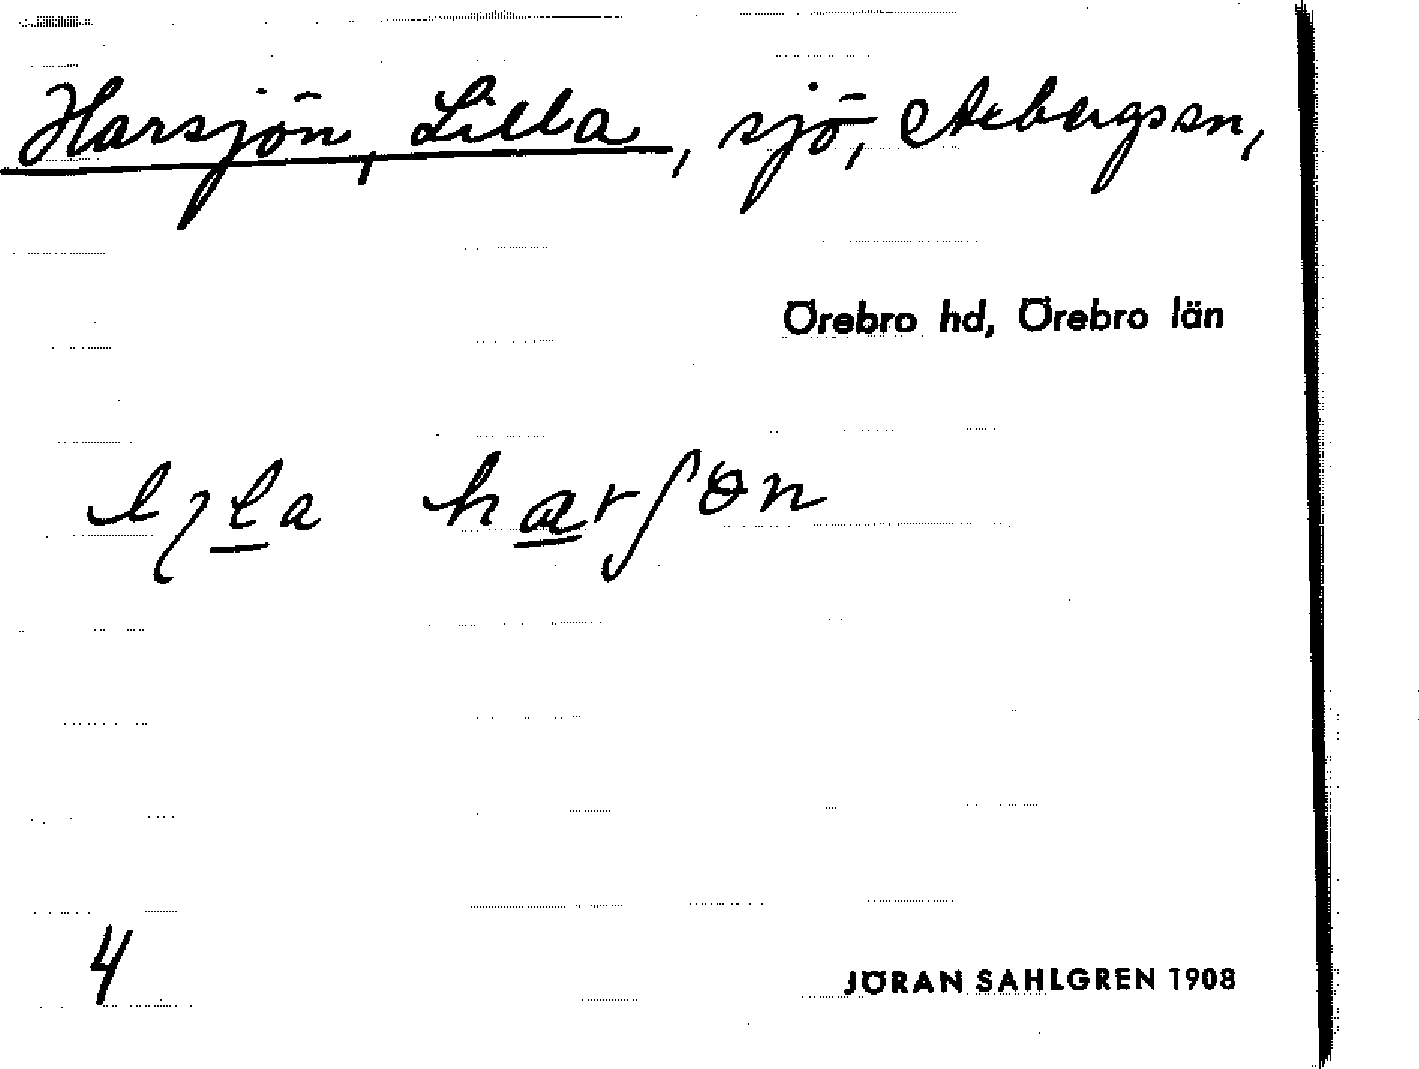 Harsjön, Lilla, sjö, Axbergs sn,
Örebro hd, Örebro län
harʃɵn
4
JÖRAN SAHLGREN 1908